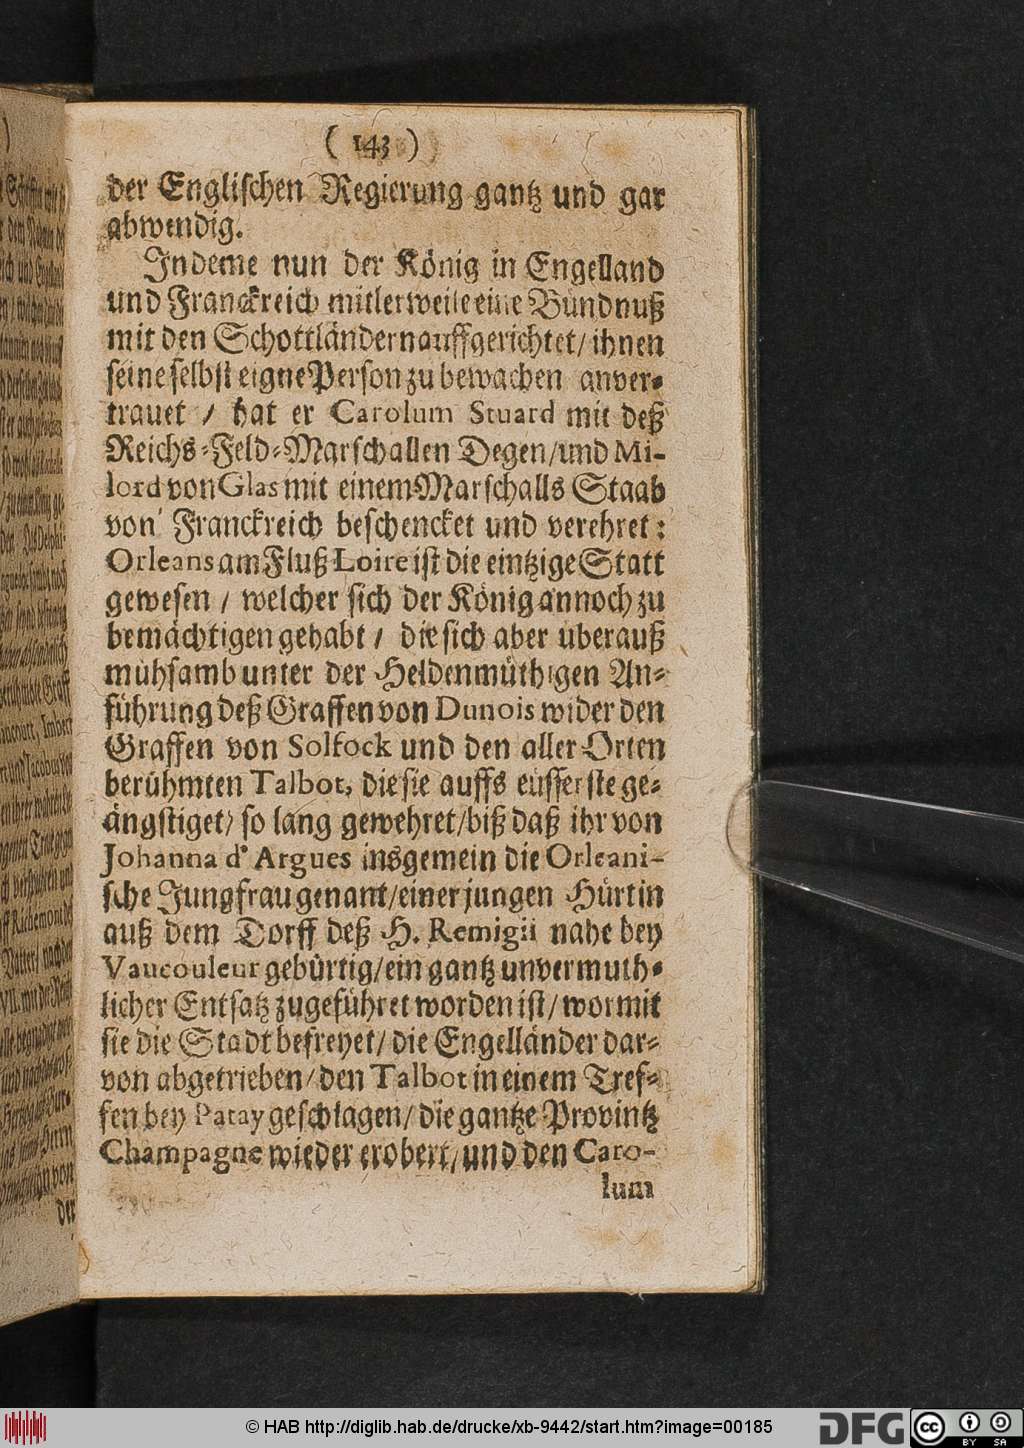 ( 143 )
der Englischen Regierung gantz und gar
abwendig.
Indeme nun der König in Engelland
und Franckreich mitlerweile eine Bündnuß
mit den Schottländern auffgerichtet/ ihnen
seine selbst eigne Person zu bewachen anver-
trauet / hat er Carolum Stuard mit deß
Reichs-Feld-Marschallen Degen/und Mi-
lord von Glas mit einem Marschalls Staab
von Franckreich beschencket und verehret:
Orleans am Fluß Loire ist die eintzige Statt
gewesen / welcher sich der König annoch zu
bemächtigen gehabt / die sich aber uberauß
mühsamb unter der Heldenmüthigen An-
führung deß Graffen von Dunois wider den
Graffen von Solfock und den aller Orten
berühmten Talbot, die sie auffs eüsserste ge-
ängstiget/ so lang gewehret/biß daß ihr von
Johanna d'Argues insgemein die Orleani-
sche Jungfrau genant/einer jungen Hürtin
auß dem Dorff deß H. Remigii nahe bey
Vaucouleur gebürtig/ein gantz unvermuth-
licher Entsatz zugeführet worden ist/wormit
sie die Stadt befreyet/ die Engelländer dar-
von abgetrieben/den Talbot in einem Tref-
fen bey Patay geschlagen/ die gantze Provintz
Champagne wieder erobert/und den Caro-
lum
der
© HAB http://diglib.hab.de/drucke/xb-9442/start.htm?image=00185
DFG
cc
BY SA